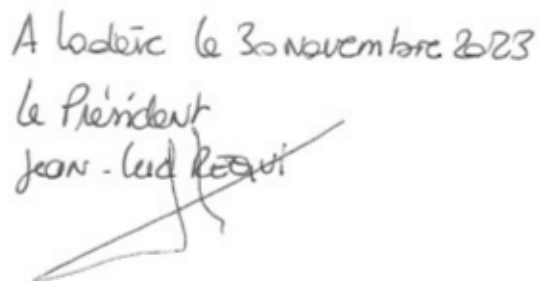 A Lodève le 30 novembre 2023
Le Président
Jean-Luc REQUI